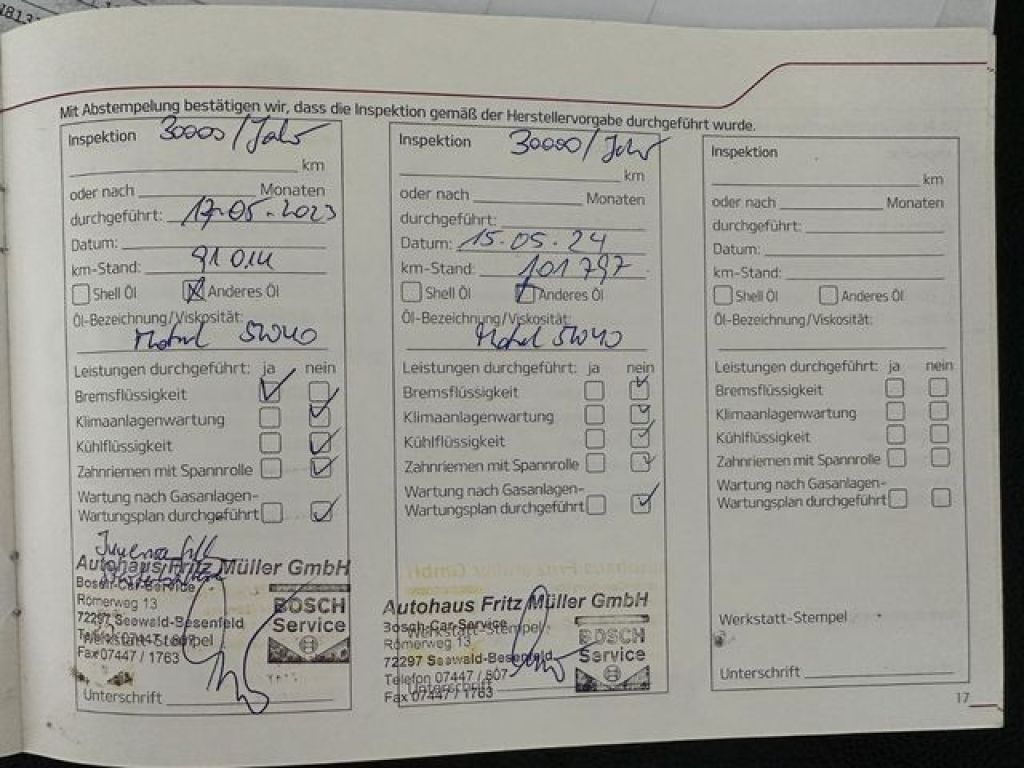 Mit Abstempelung bestätigen wir, dass die Inspektion gemäß der Herstellervorgabe durchgeführt wurde.
Inspektion 30000/Jahr
km
oder nach Monaten
durchgeführt: 17.05.2023
Datum:
km-Stand: 91014
Shell Öl Anderes Öl
Öl-Bezeichnung/Viskosität:
Motul 5W40
Leistungen durchgeführt: ja nein
Bremsflüssigkeit
Klimaanlagenwartung
Kühlflüssigkeit
Zahnriemen mit Spannrolle
Wartung nach Gasanlagen-
Wartungsplan durchgeführt
Autohaus Fritz Müller GmbH
Bosch-Car-Service
Römerweg 13
72297 Seewald-Besenfeld
Telefon 07447 / 807
Werkstatt-Stempel
Fax 07447 / 1763
BOSCH
Service
Unterschrift
Inspektion 30000/Jahr
km
oder nach Monaten
durchgeführt:
Datum: 15.05.24
km-Stand: 101797
Shell Öl Anderes Öl
Öl-Bezeichnung/Viskosität:
Motul 5W40
Leistungen durchgeführt: ja nein
Bremsflüssigkeit
Klimaanlagenwartung
Kühlflüssigkeit
Zahnriemen mit Spannrolle
Wartung nach Gasanlagen-
Wartungsplan durchgeführt
Autohaus Fritz Müller GmbH
Bosch-Car-Service
Werkstatt-Stempel
Römerweg 13
72297 Seewald-Besenfeld
Telefon 07447 / 807
Fax 07447 / 1763
BOSCH
Service
Unterschrift
Inspektion
km
oder nach Monaten
durchgeführt:
Datum:
km-Stand:
Shell Öl Anderes Öl
Öl-Bezeichnung/Viskosität:
Leistungen durchgeführt: ja nein
Bremsflüssigkeit
Klimaanlagenwartung
Kühlflüssigkeit
Zahnriemen mit Spannrolle
Wartung nach Gasanlagen-
Wartungsplan durchgeführt
Werkstatt-Stempel
Unterschrift
17